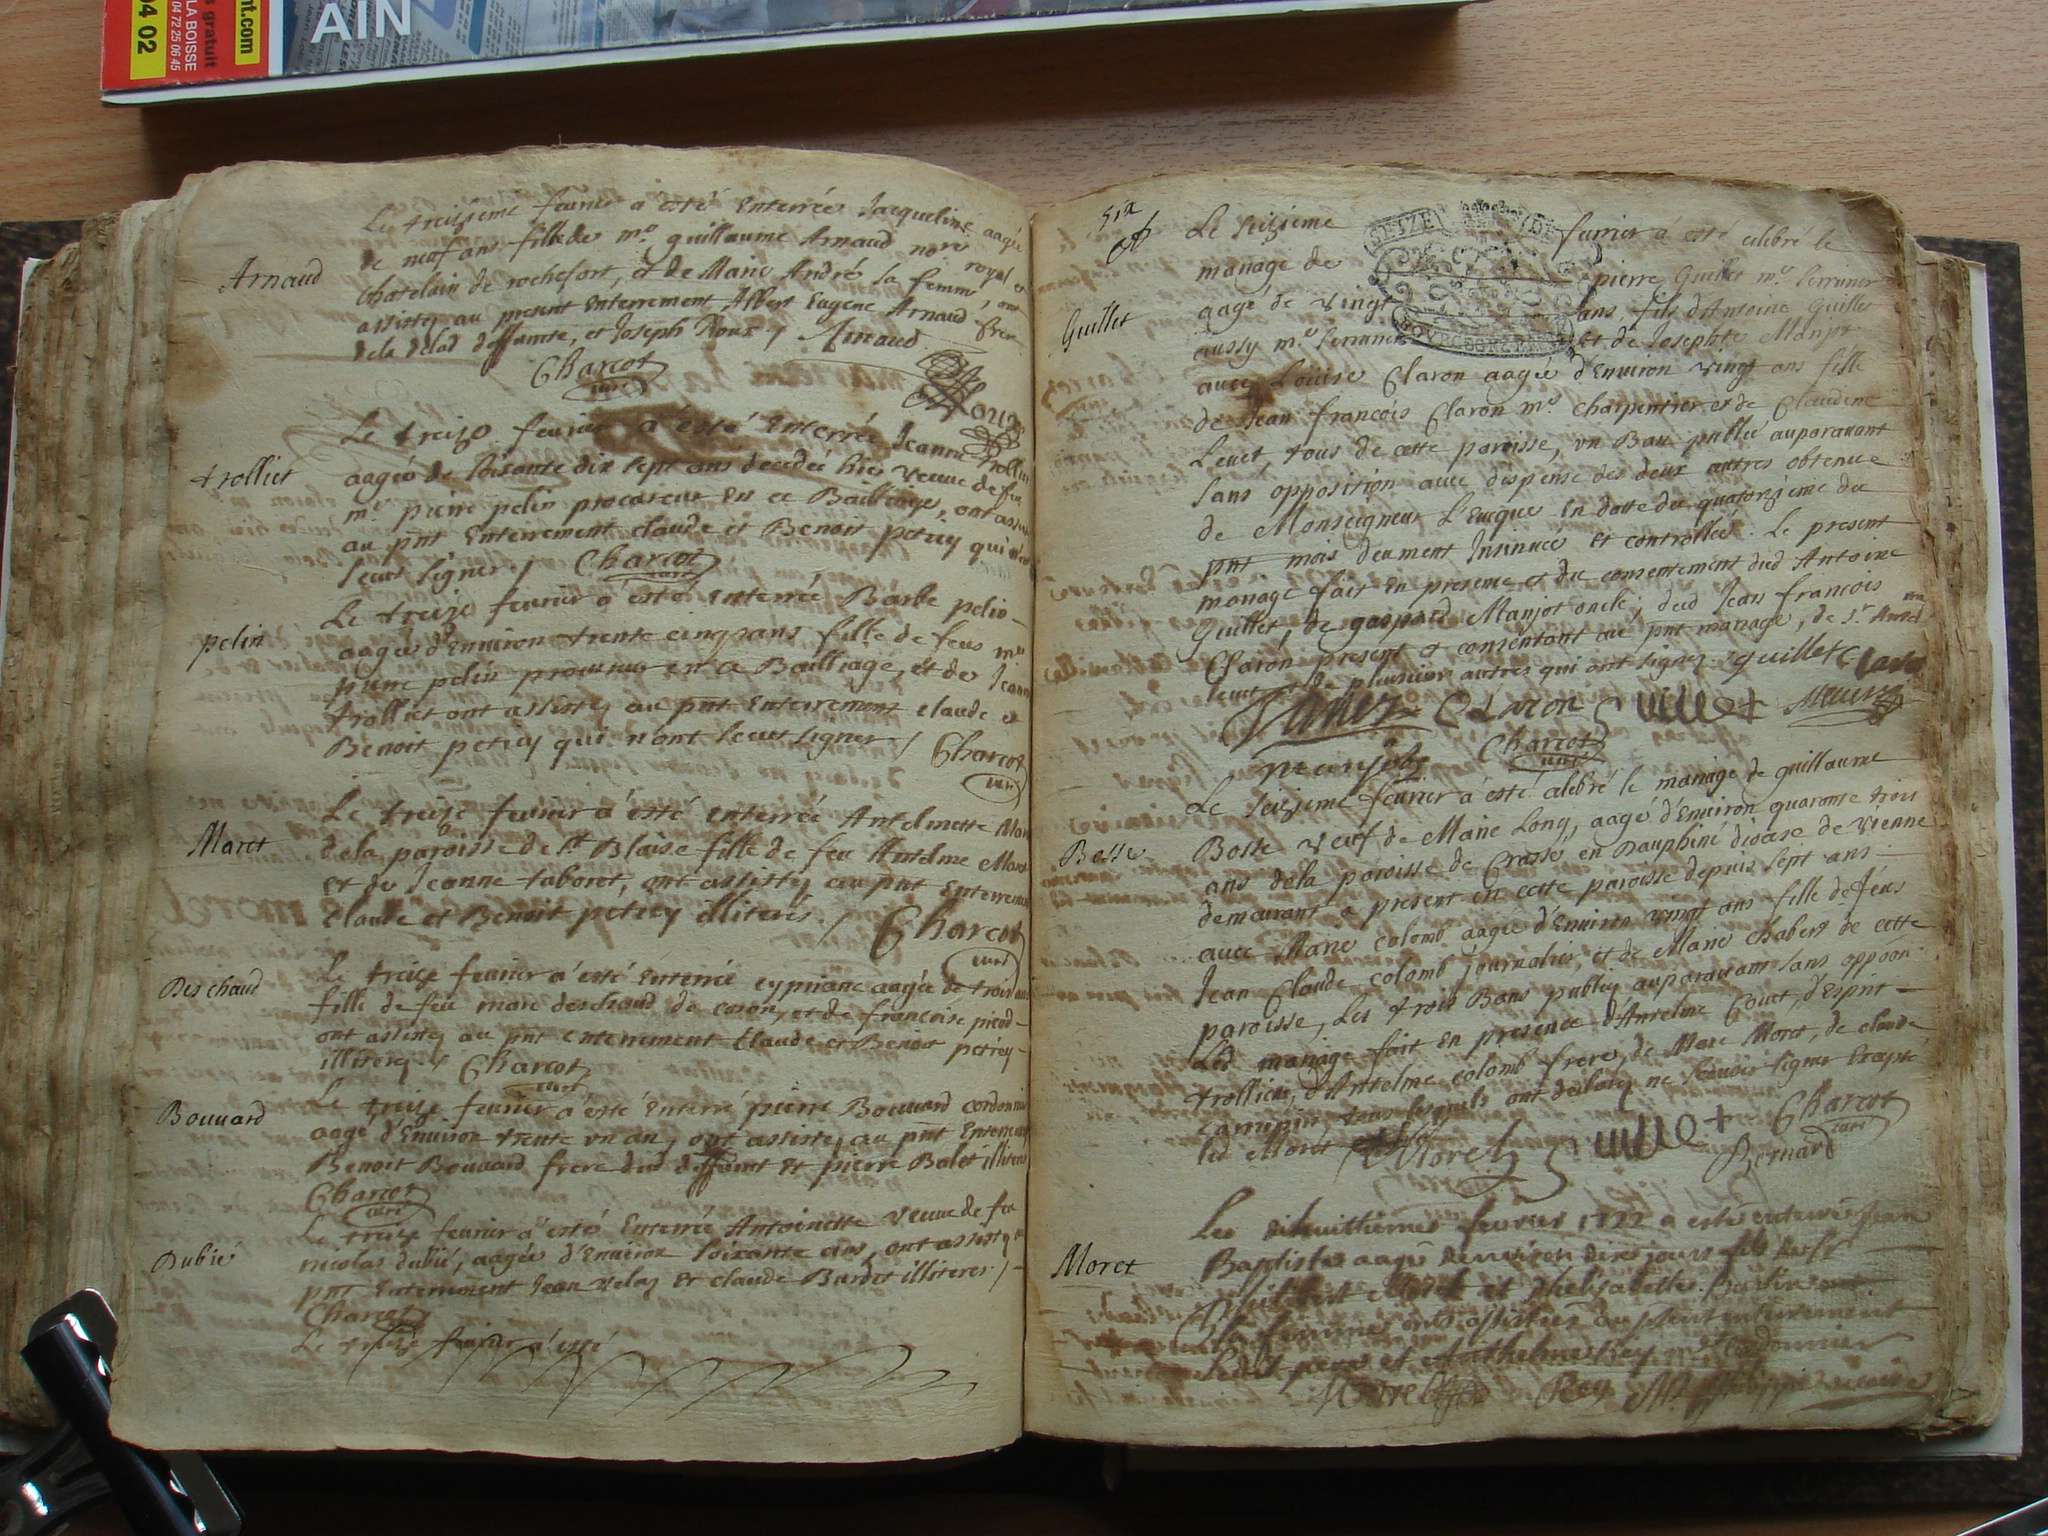 04 02
LA BOISSE
04 72 25 06 45
s gratuit
nt.com
AIN
Le treizieme fevrier a esté Enterrée Jacqueline aagée
de neuf ans fille de mre guillaume Arnaud nore royal et
Arnaud
Chatelain de rochefort, et de Marie André sa femme, ont
assistez au present Enterrement Albert Eugene Arnaud frere
dela deffunte, et Joseph Roux / Arnaud
Charcot
curé
Roux
Le treize fevrier a esté Enterrée Jeanne Trolliet
trolliet
aagée de soixante dix sept ans decedée hier veuve de feu
me pierre pelin procureur en ce Bailliage, ont assisté
au pnt Enterrement claude et Benoit petrey qui n'ont
sceut signer / Charcot
curé
Le treize fevrier a esté enterrée Barbe pelin
pelin
aagée d'Environ trente cinq ans fille de feus me
pierre pelin procureur en ce Bailliage, et de Jeanne
trolliet ont assistez au pnt Enterrement claude et
Benoit petrey qui n'ont sceut signer / Charcot
curé
Le treize fevrier a esté enterrée Antelmette Maret
Maret
dela paroisse de St Blaise fille de feu Antelme Maret
et de Jeanne taboret, ont assistez au pnt Enterrement
Claude et Benoit petrey illiteres. / Charcot
curé
Deschaud
Le treize fevrier a esté Enterrée cypriane aagée de trois ans
fille de feu marc deschaud de coron, et de francoise picod
ont assistez au pnt enterrement Claude et Benoit petrey
illiteres / Charcot
curé
Bouvard
Le treize fevrier a esté Enterré pierre Bouvard cordonnier
aagé d'Environ trente un an, ont assistez au pnt Enterrement
Benoit Bouvard frere dud deffunt et pierre Balet illiteres
Charcot
curé
Le treize fevrier a esté Enterrée Antoinette veuve de feu
Dubié
nicolas dubié, aagée d'Environ soixante ans, ont assistez au
pnt Enterrement Jean velay et claude Burdet illiteres /
Charcot
Le treize fevrier a esté
Six
Le seizieme fevrier a esté celebré le
mariage de pierre Guillet me serrurier
Guillet
aagé de vingt ans, fils d'Antoine Guillet
aussy me serrurier et de Josephte Manjot
avec Louise Claron aagée d'Environ vingt ans fille
de Jean francois Claron me charpentier et de Claudine
Levet tous de cette paroisse, un Ban publié auparavant
sans opposition avec dispense des deux autres obtenue
de Monseigneur L'Eveque en datte du quatorzieme du
pnt mois deument Insinuée et controllée. Le present
mariage fait en presence et du consentement dud Antoine
Guillet, de gaspard Manjot oncle, dud Jean francois
Claron present et consentant au pnt mariage, de Sr
levet et de plusieurs autres qui ont signez. guillet Claron
Claron guillet
manjot Charcot
curé
Le seizieme fevrier a esté celebré le mariage de guillaume
Bosse
Bosse veuf de Marie Long, aagé d'Environ quarante trois
ans dela paroisse de Crasse en Dauphiné diocese de vienne
demeurant a present en cette paroisse depuis sept ans
avec Marie colomb aagée d'Environ vingt ans fille de feus
Jean Claude colomb journalier, et de Marie Chabert de cette
paroisse, Les trois Bans publiez auparavant sans oppoon
Led mariage fait en presence d'Antelme Couet, d'Esprit
trolliet, d'Antelme colomb frere, de Marc Moret, de claude
tous lesquels ont declarez ne scavoir signer Excepté
led Moret Moret Charcot
curé
Bernard
Moret
Le dixhuittieme fevrier 1722 a esté enterré Jean
Baptiste aagé denviron dix jours fils de Sr
Philibert Moret et d'helisabeth
sa femme, ont assistez au psent enterrement
Ledit pere et Anthelme Rey me Cordonnier
Moret Rey